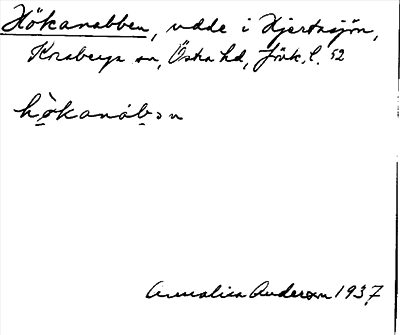 Hökanabben, udde i Hjertasjön,
Kråksberga sn, Östra hd, Jönk. l. 52
hökanåbən
Annalisa Anderson 1937